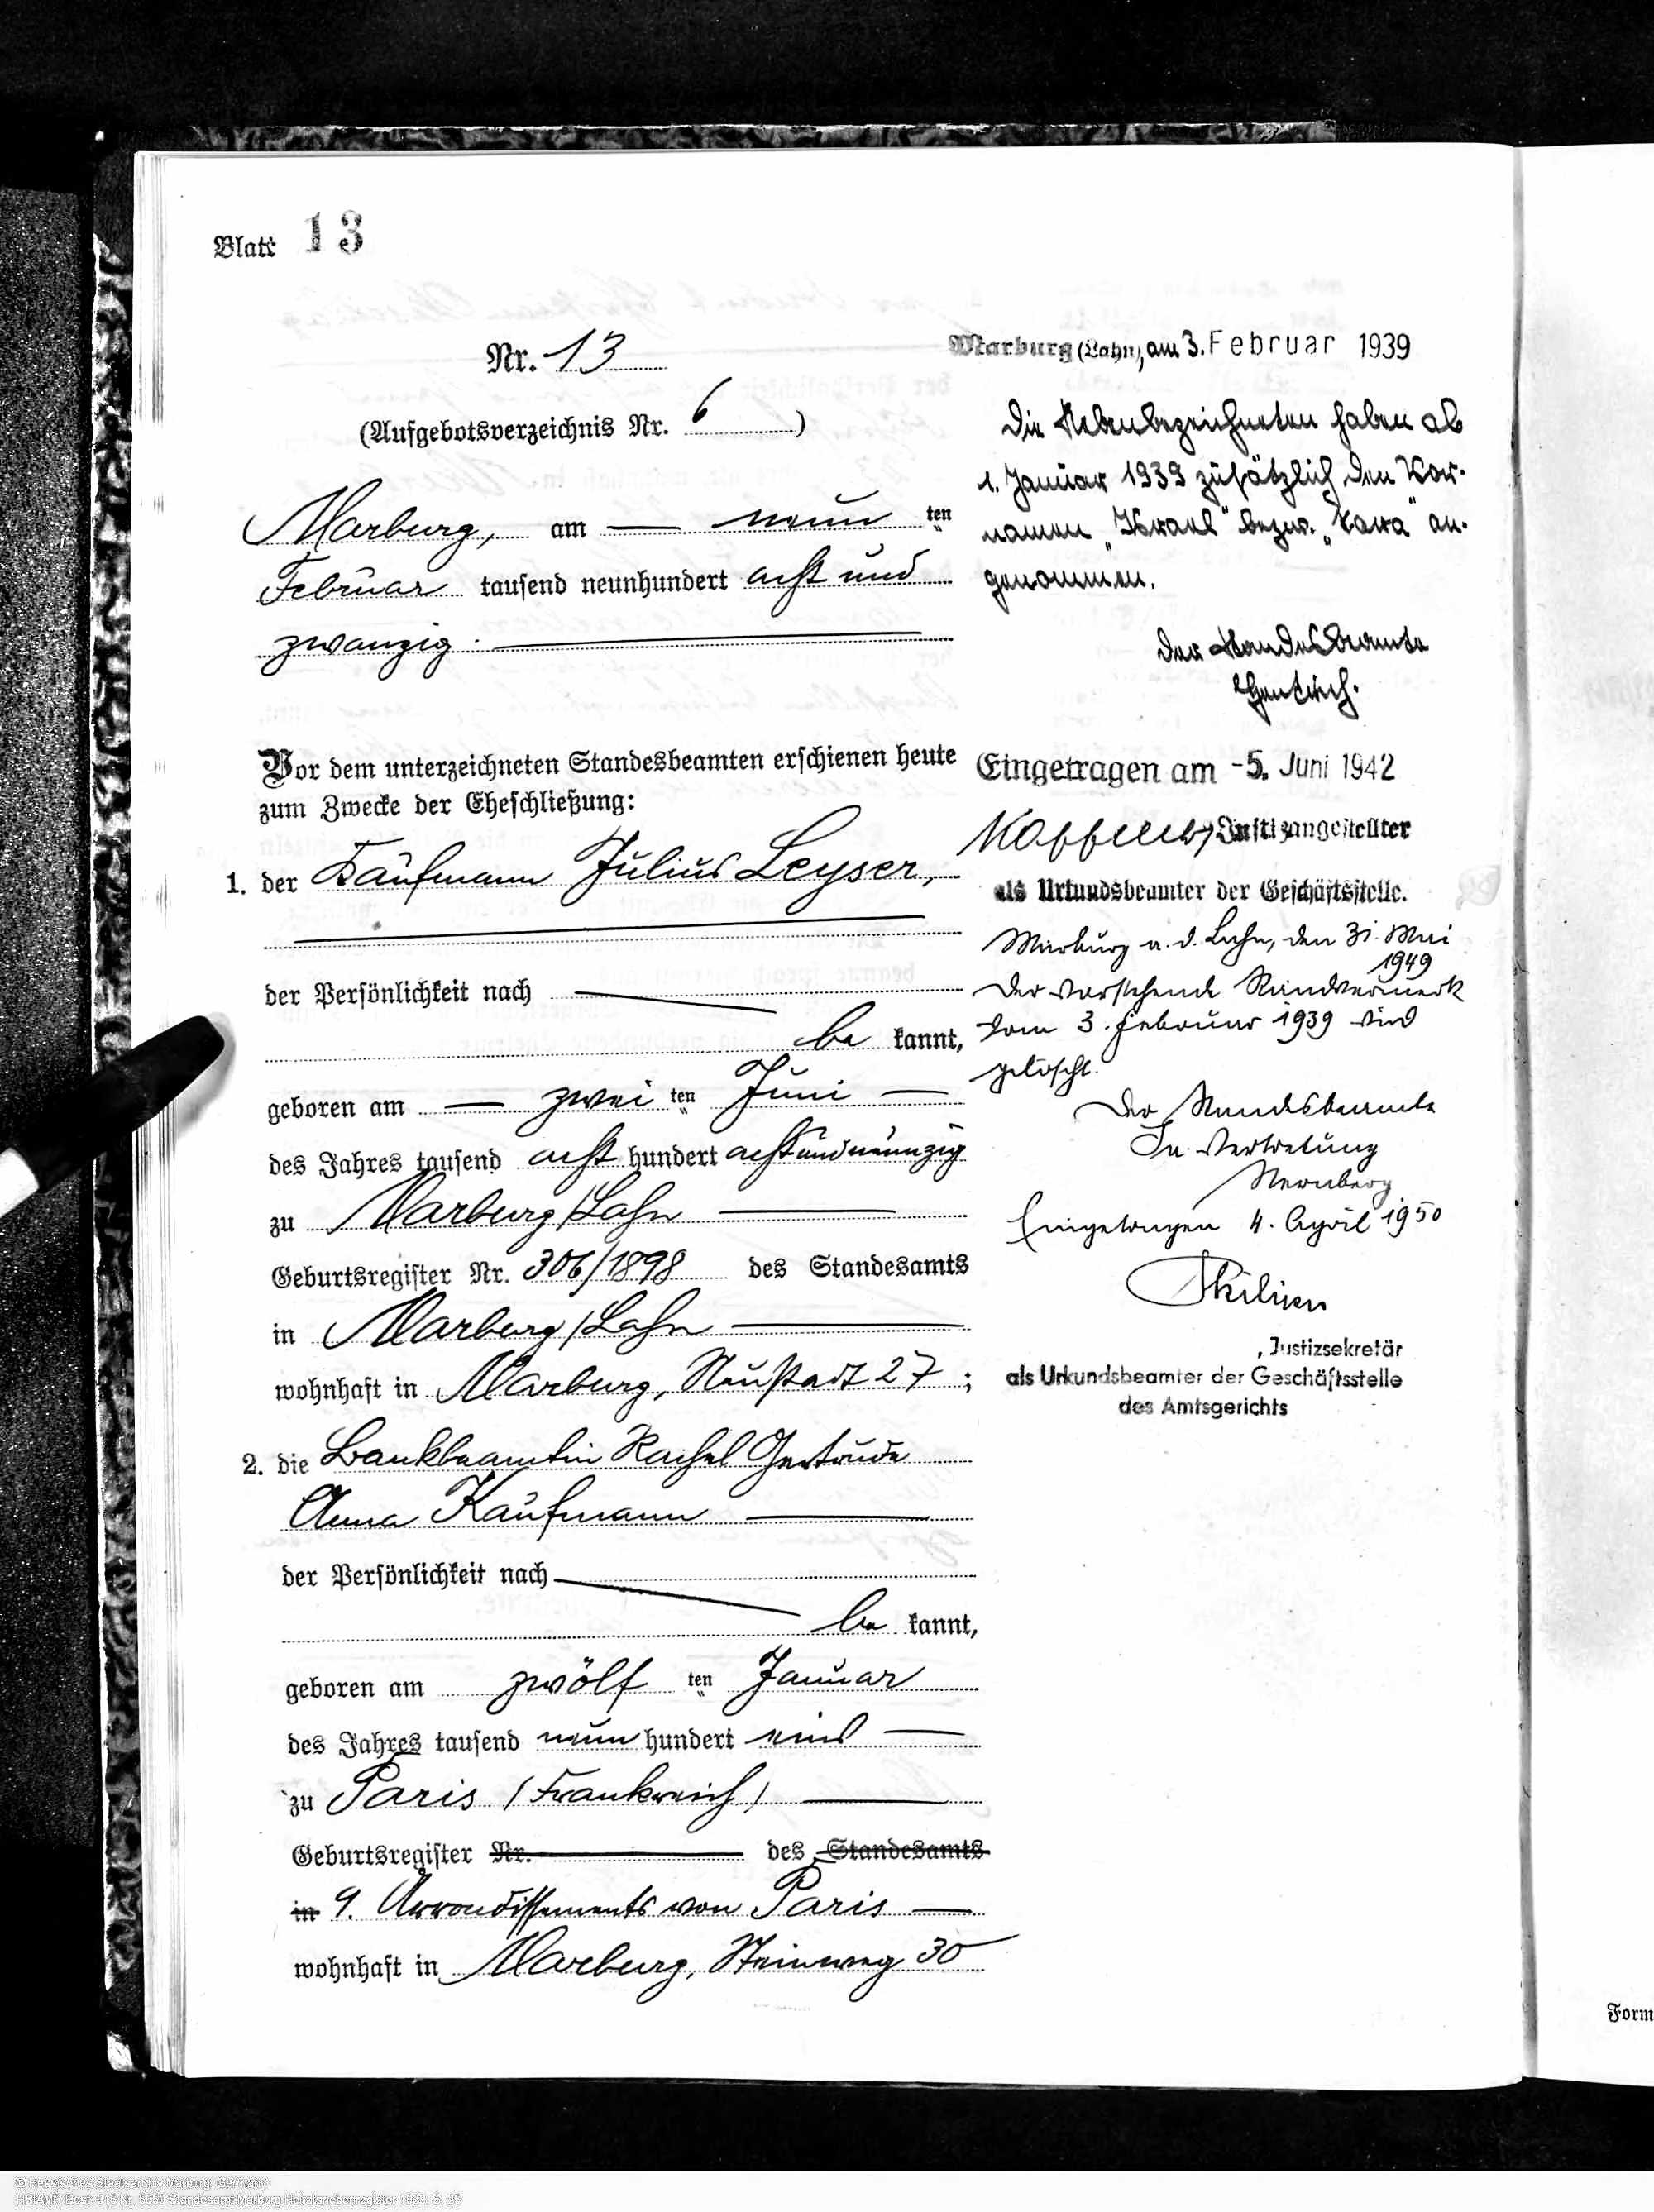 Blatt 13
Nr. 13
(Aufgebotsverzeichnis Nr. 6)
Marburg, am neun ten
Februar tausend neunhundert acht und
zwanzig.
Vor dem unterzeichneten Standesbeamten erschienen heute
zum Zwecke der Eheschließung:
1. der Kaufmann Julius Leyser,
der Persönlichkeit nach
be kannt,
geboren am zwei ten Juni
des Jahres tausend acht hundert achtundneunzig
zu Marburg/Lahn
Geburtsregister Nr. 306/1898 des Standesamts
in Marburg/Lahn
wohnhaft in Marburg, Neustadt 27;
2. die Bankbeamtin Rachel Gertrude
Anna Kaufmann
der Persönlichkeit nach
be kannt,
geboren am zwölf ten Januar
des Jahres tausend neun hundert eins
zu Paris (Frankreich)
Geburtsregister Nr. des Standesamts
in 9. Arrondissements von Paris
wohnhaft in Marburg, Steinweg 30
Marburg (Lahn), am 3. Februar 1939
Die Nebenbezeichneten haben ab
1. Januar 1939 zusätzlich den Vor-
namen „Israel" bezw. „Sara" an-
genommen.
Der Standesbeamte
Eingetragen am -5. Juni 1942
Justizangestellter
als Urkundsbeamter der Geschäftsstelle.
Marburg a. d. Lahn, den 31. Mai
1949
Der vorstehende Randvermerk
vom 3. Februar 1939 wird
gelöscht.
Der Standesbeamte
In Vertretung
Nernberg
Eingetragen 4. April 1950
, Justizsekretär
als Urkundsbeamter der Geschäftsstelle
des Amtsgerichts
Form